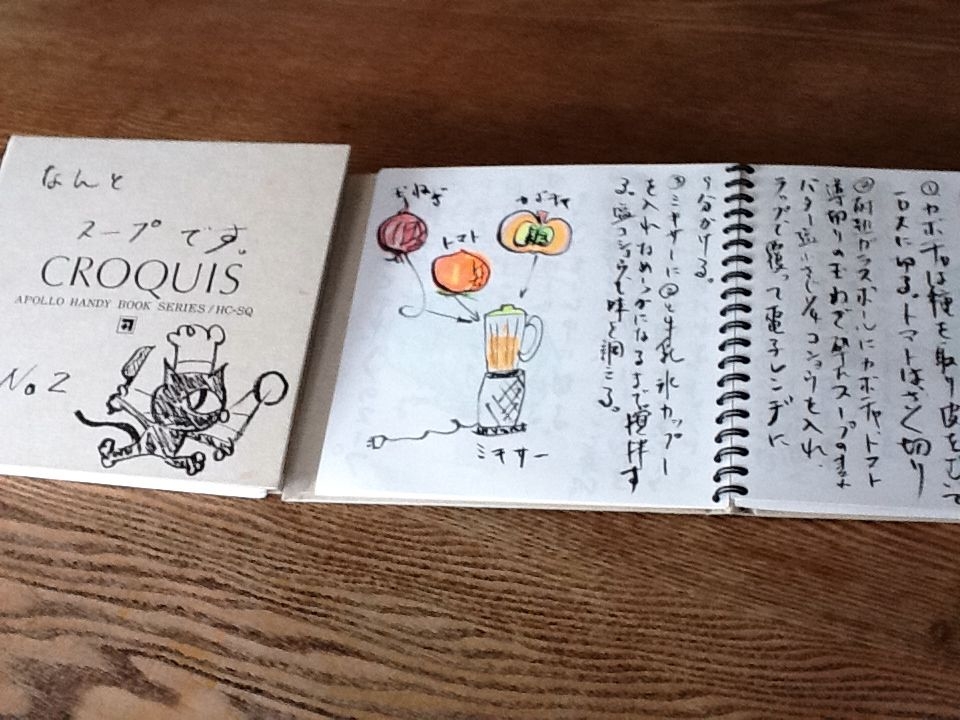 なんと
スープです。
CROQUIS
APOLLO HANDY BOOK SERIES/HC-SQ
No.2
①カボチャは種を取り皮をむいて
一口大に切る。トマトはざく切り
②耐熱ガラスボールにカボチャ、トマト
薄切りの玉ねぎ、固形スープの素
バター、塩小さじ1/4 コショウを入れ、
ラップで覆って電子レンヂに
9分かける。
③ミキサーに②と牛乳 氷カップ一
を入れなめらかになるまで撹拌す
る。塩コショウで味を調える。
玉ねぎ
トマト
カボチャ
ミキサー